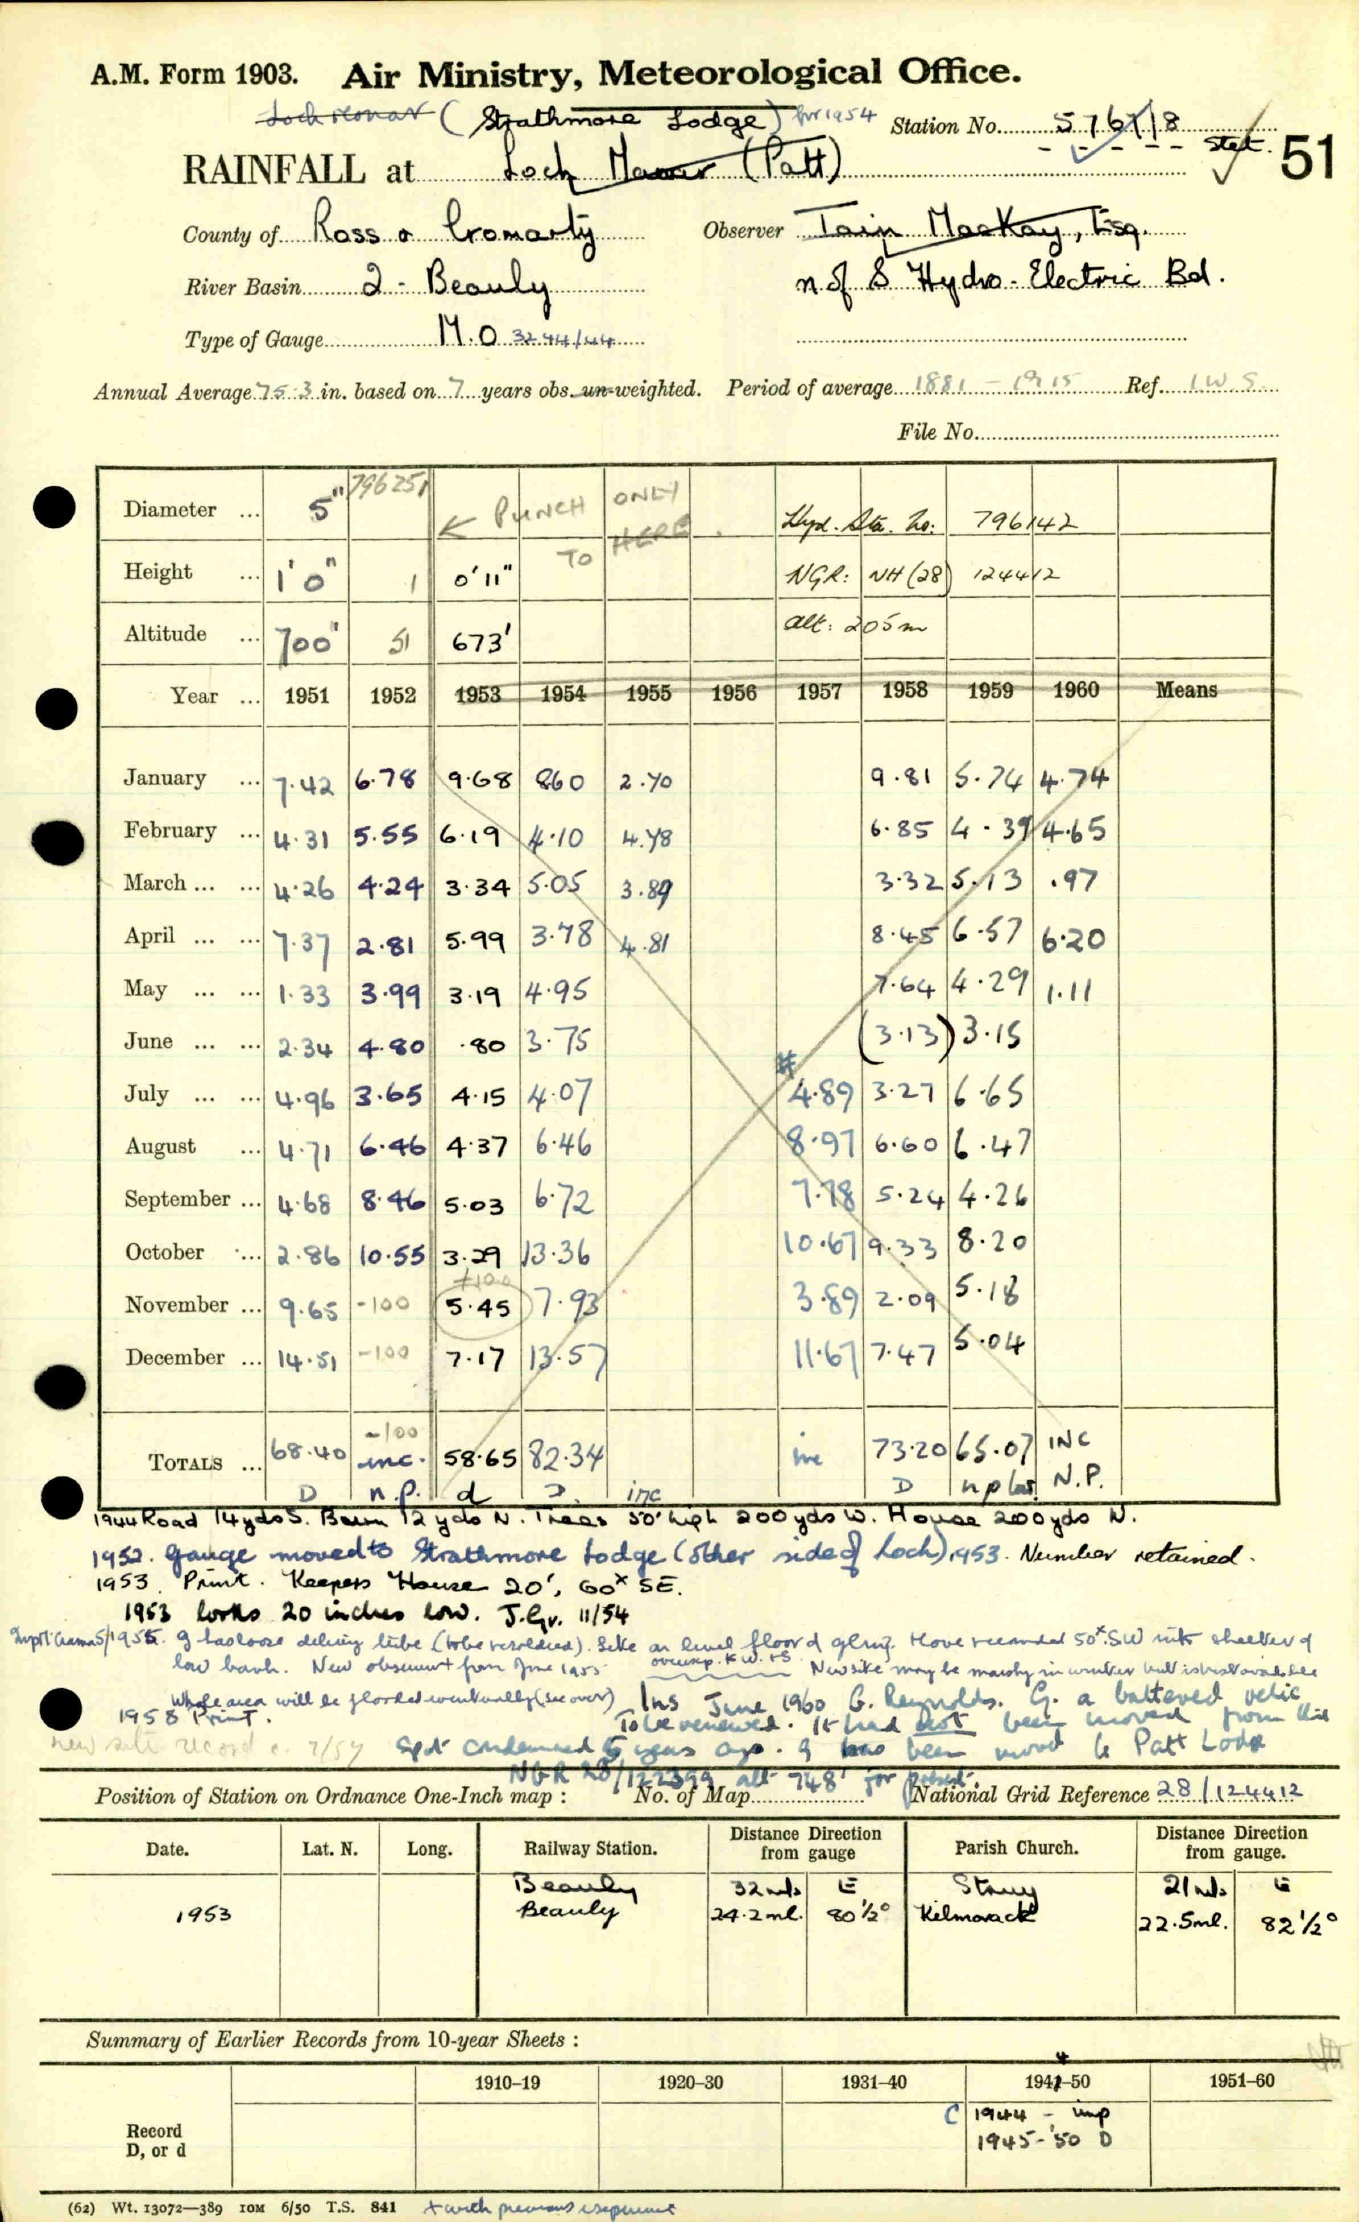 A.M. Form 1903. Air Ministry, Meteorological Office.
Loch Monar (Strathmore Lodge) for 1954 Station No. 576718 Stet.
RAINFALL at Loch Monar (Patt) 51
County of Ross & Cromarty Observer Iain MacKay, Esq.
River Basin 2 - Beauly N of S Hydro-Electric Bd.
Type of Gauge M.O 3244/44
Annual Average 75.3 in. based on 7 years obs. un-weighted. Period of average 1881 - 1915 Ref. I W S
File No.
Diameter ... 5" 796251 ← PUNCH ONLY Hyd. Sta. No: 796142
Height ... 1'0" 1 0'11" TO HERE NGR: NH (28) 124412
Altitude ... 700' 51 673' Alt: 205m
Year ... 1951 1952 1953 1954 1955 1956 1957 1958 1959 1960 Means
January ... 7.42 6.78 9.68 860 2.70 9.81 5.74 4.74
February ... 4.31 5.55 6.19 4.10 4.78 6.85 4.39 4.65
March ... ... 4.26 4.24 3.34 5.05 3.89 3.32 5.13 .97
April ... ... 7.37 2.81 5.99 3.78 4.81 8.45 6.57 6.20
May ... ... 1.33 3.99 3.19 4.95 7.64 4.29 1.11
June ... ... 2.34 4.80 .80 3.75 (3.13) 3.15
#
July ... ... 4.96 3.65 4.15 4.07 4.89 3.27 6.65
August ... 4.71 6.46 4.37 6.46 8.97 6.60 6.47
September ... 4.68 8.46 5.03 6.72 7.78 5.24 4.26
October ... 2.86 10.55 3.29 13.36 10.67 9.33 8.20
+100
November ... 9.65 -100 5.45 7.93 3.89 2.09 5.18
December ... 14.51 -100 7.17 13.57 11.67 7.47 5.04
-100
TOTALS ... 68.40 inc. 58.65 82.34 inc 73.20 65.07 INC
D n.p. d D. inc D n p N.P.
1944 Road 14yds S. Barn 12yds N. Trees 50' high 200yds W. House 200yds N.
1952. Gauge moved to Strathmore Lodge (other side of Loch) 1953. Number retained.
1953. Print. Keepers House 20', 60x SE.
1953 looks 20 inches low. J.Gr. 11/54
1955. G has loose delivery tube (to be resoldered). Site on level floor of glen. Move recommended 50x SW into shelter of
low bank. New observer from June 1955 New site may be marshy in winter but is best available
Whole area will be flooded eventually (see over) Ins June 1960 G. Reynolds. G. a battered relic
1958 Print. To be renewed. It had not been moved from this
new site record c. 7/57 spot condemned 5 years ago. G has been moved to Patt Lodge
NGR 28/122399 alt 748' for present.
Position of Station on Ordnance One-Inch map : No. of Map National Grid Reference 28/124412
Date. Lat. N. Long. Railway Station. Distance from gauge Direction Parish Church. Distance from gauge. Direction
Beauly 32 mls E Struy 21 mls E
1953 Beauly 24.2 ml. 80½° Kilmorack 22.5 ml. 82½°
Summary of Earlier Records from 10-year Sheets :
1910–19 1920–30 1931–40 1941–50 1951–60
4
Record C 1944 - imp
D, or d 1945-'50 D
(62) Wt. 13072—389 10M 6/50 T.S. 841 + with previous